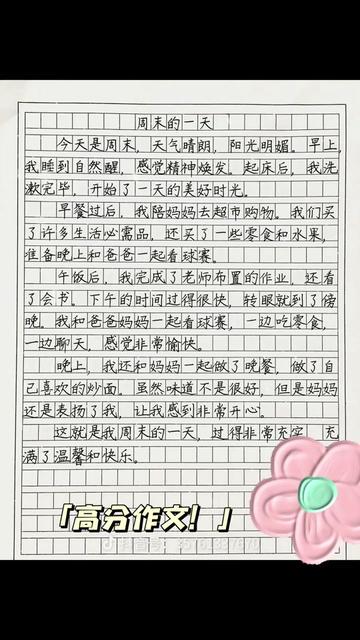 周末的一天
今天是周末，天气晴朗，阳光明媚。早上，
我睡到自然醒，感觉精神焕发。起床后，我洗
漱完毕，开始了一天的美好时光。
早餐过后，我陪妈妈去超市购物。我们买
了许多生活必需品，还买了一些零食和水果，
准备晚上和爸爸一起看球赛。
午饭后，我完成了老师布置的作业，还看
了会书。下午的时间过得很快，转眼就到了傍
晚。我和爸爸妈妈一起看球赛，一边吃零食，
一边聊天，感觉非常愉快。
晚上，我还和妈妈一起做了晚餐，做了自
己喜欢的炒面。虽然味道不是很好，但是妈妈
还是表扬了我，让我感到非常开心。
这就是我周末的一天，过得非常充实，充
满了温馨和快乐。
「高分作文！」
抖音号：